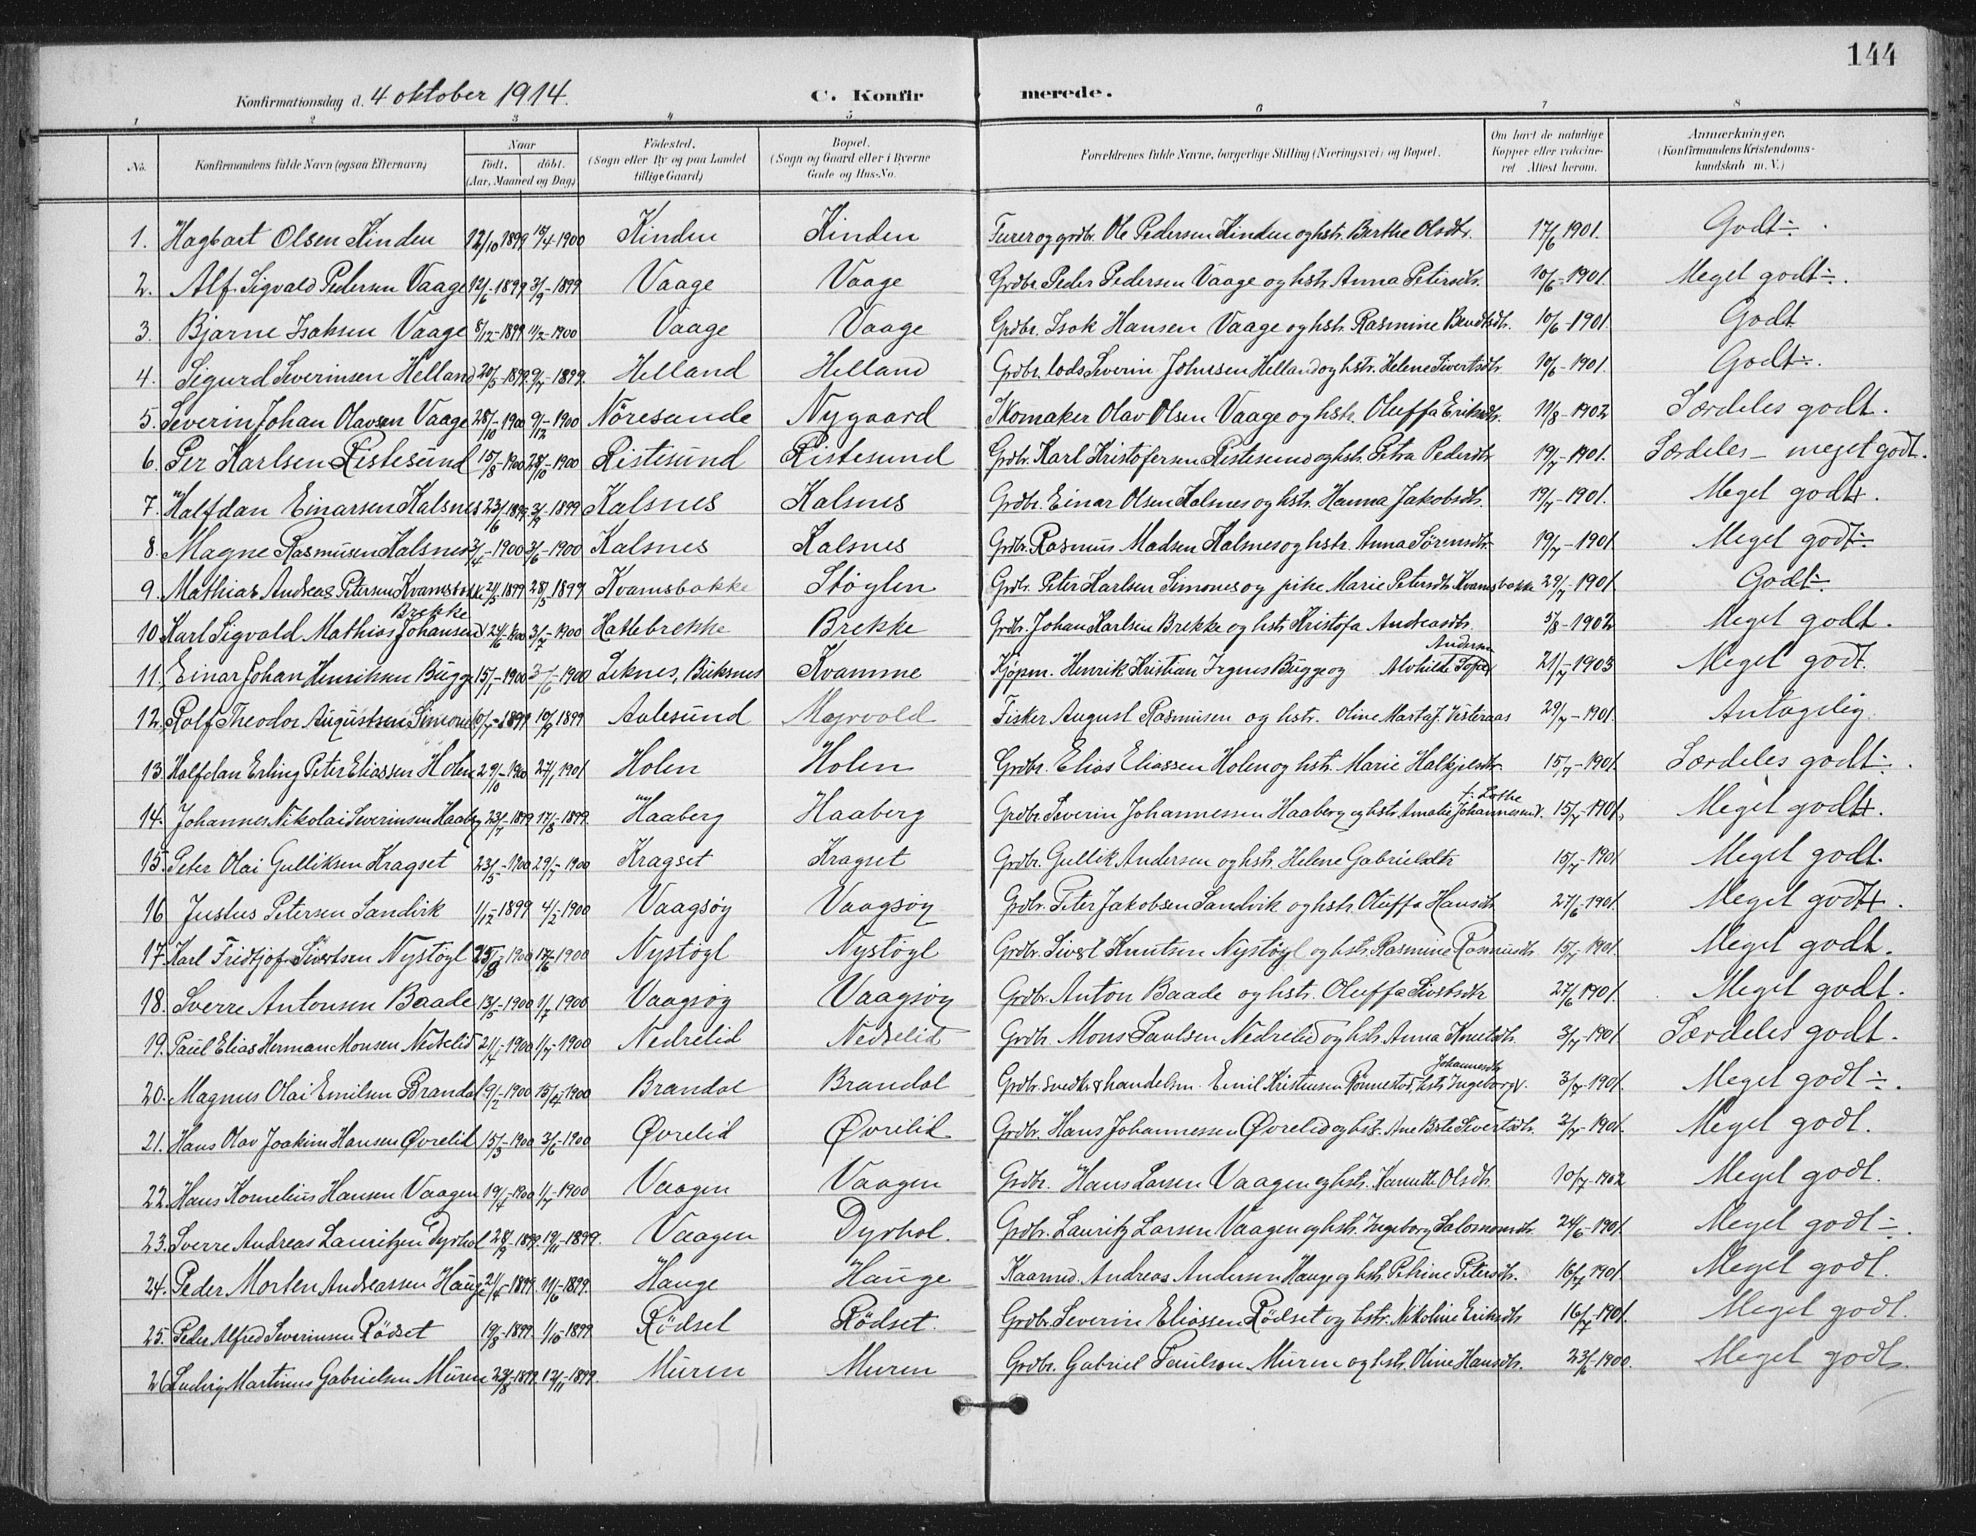 144
Konfirmationsdag d. 4 oktober 1914. C. Konfirmerede.
1 2 3 4 5 6 7 8
No. Konfirmandens fulde Navn (ogsaa Efternavn) Naar Født. døbt. (Aar, Maaned og Dag) Fødested. (Sogn eller By og paa Landet tillige Gaard) Bopæl. (Sogn og Gaard eller i Byerne Gade og Hus-No. Forældrenes fulde Navne, borgerlige Stilling (Næringsvei) og Bopæl. Om havt de naturlige Kopper eller vakcineret Attest herom. Anmærkninger. (Konfirmandens Kristendomskundskab m. V.)
1. Hagbart Olsen Kinden 12/10 1899 15/4 1900 Kinden Kinden Furer og grdbr. Ole Pedersen Kinden og hstr. Berthe Olsdtr. 17/6 1901. Godt ÷.
2. Alf Sigvald Pedersen Vaage 12/6-1899 3/9-1899 Vaage Vaage Grdbr. Peder Pedersen Vaage og hstr. Anna Petersdtr. 10/6-1901. Meget godt ÷.
3. Bjarne Isaksen Vaage 8/12-1899 11/2-1900 Vaage Vaage Grdbr. Isak Hansen Vaage og hstr. Rasmine Bendtsdtr. 10/6-1901. Godt
4. Sigurd Severinsen Helland 20/5-1899. 9/7-1899. Helland Helland Grdbr. lods Severin Johnssen Helland og hstr. Helene Sivertsdtr. 10/6-1901. Godt ÷.
5. Severin Johan Olavsen Vaage 28/10-1900 9/12-1900 Nöresunde Nygaard Skomaker Olav Olsen Vaage og hstr. Oluffa Eriksdtr. 11/8-1902 Særdeles godt.
6. Per Karlsen Ristesund 15/8-1900 28/10-1900 Ristesund Ristesund Grdbr. Karl Kristofersen Ristesund og hstr. Petra Pedersdtr 19/7-1901. Særdeles - meget godt.
7. Halfdan Einarsen Kalsnes 23/6-1899. 3/9-1899 Kalsnes Kalsnes Grdbr. Einar Olsen Kalsnes og hstr. Hanna Jakobsdtr. 19/7-1901. Meget godt +.
8. Magne Rasmusen Kalsnes 3/4-1900 3/6-1900 Kalsnes Kalsnes Grdbr. Rasmus Madsen Kalsnes og hstr. Anna Sørensdtr. 19/7-1901. Meget godt ÷.
9. Mathias Andreas Petersen Kvamsbakke 21/3 1899 28/5-1899 Kvamsbakke Støylen Grdbr. Peter Karlsen Simones og pike Marie Petersdtr. Kvamsbakke 29/7-1901. Godt ÷.
10. Karl Sigvald Mathias Johansen Brekke 24/6-1900 3/7-1900 Hattebrekke Brekke Grdbr. Johan Karlsen Brekke og hstr. Kristofa Andreasdtr. 5/8-1902 Meget godt.
11. Einar Johan Henriksen Bugge 15/1-1900 3/6-1900 Leknes, Buksnes Kvamme Kjøpm. Henrik Kristian Irgens Bugge og Alvhilde Sofie Andersen 21/7-1903 Meget godt.
12. Rolf Theodor Augustsen Simones 10/7-1899. 10/9 1899 Aalesund Myrvold Fisker August Rasmusen og hstr. Oline Marta J. Vesteraas 29/7-1901. Antagelig
13. Halfdan Erling Peter Eliassen Holen 29/10-1900 27/1 1901 Holen Holen Grdbr. Elias Eliassen Holen og hstr. Marie Halkjelsdtr. 15/7-1901. Særdeles godt ÷.
14. Johannes Nikolai Severinsen Haaberg 23/7-1899 17/8-1899. Haaberg Haaberg Grdbr. Severin Johannessen Haaberg og hstr. Amalie Johannesend. f: Lothe 15/7-1901. Meget godt +.
15. Peter Olai Gulliksen Kragset 23/5-1900 29/7-1900 Kragset Kragset Grdbr. Gullik Andersen og hstr. Helene Gabrielsdtr 15/7-1901 Meget godt.
16 Justus Petersen Sandvik 1/12-1899 4/2-1900 Vaagsøy Vaagsøy Grdbr. Peter Jakobsen Sandvik og hstr. Oluffa Hansdtr 27/6-1901. Meget godt +.
17. Karl Fridtjof Sivertsen Nystøyl 25/3 1900 17/6-1900 Nystøyl Nystøyl Grdbr. Sivert Knutsen Nystøyl og hstr. Rasmine Rasmusdtr. 15/7-1901. Meget godt.
18. Sverre Antonsen Baade 13/5-1900 1/7-1900 Vaagsøy Vaagsøy Grdbr. Anton Baade og hstr. Oluffa Sivertsdtr 27/6 1901. Meget godt.
19. Paul Elias Herman Monsen Nedrelid 21/4-1900 1/7-1900 Nedrelid Nedrelid Grdbr. Mons Paulsen Nedrelid og hstr. Anna Knutsdtr. 3/7-1901 Særdeles godt.
20. Magnus Olai Emilsen Brandal 9/2-1900 15/4-1900 Brandal Brandal Grdbr. snedk. & handelsm. Emil Kristiansen Rønnestad, hstr. Ingeborg J. Johannesdtr. 3/7-1901. Meget godt ÷.
21. Hans Olav Joakim Hansen Øvrelid 15/3-1900 3/6-1900 Øvrelid Øvrelid Grdbr. Hans Johannessen Øvrelid og hstr. Ane Brte Sivertsdtr. 2/7-1901. Meget godt.
22. Hans Kornelius Hansen Vaagen 19/4-1900 1/7-1900 Vaagen Vaagen Grdbr. Hans Larsen Vaagen og hstr. Kanutte Olsdtr. 10/7-1902 Meget godt.
23. Sverre Andreas Lauritzen Dyrhol 28/9-1899. 19/11-1899. Vaagen Dyrhol. Grdbr. Lauritz Larsen Vaagen og hstr. Ingeborg Salomonsdtr. 24/6-1901. Meget godt ÷.
24. Peder Morten Andreassen Hauge 21/4-1899. 11/6-1899. Hauge Hauge Kaarmd. Andreas Andersen Hauge og hstr. Petrine Petersdtr. 16/7 1901. Meget godt.
25. Peder Alfred Severinsen Rödset 19/8-1899. 1/10-1899 Rödset Rødset. Grdbr. Severin Eliassen Rødset og hstr. Nikoline Eriksdtr. 16/7-1901. Meget godt.
26. Ludvig Martinus Gabrielsen Muren 23/8-1899. 12/11-1899. Muren Muren Grdbr. Gabriel Paulsen Muren og hstr. Oline Hansdtr. 23/6-1900. Meget godt.